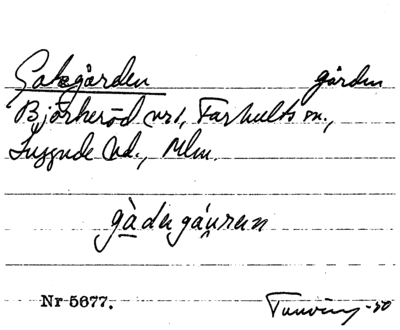 Gategården gården
Björkeröd nr 1, Farhults sn.,
Luggude hd., Mlm.
gàdegáuren
Nr 5677.
-50